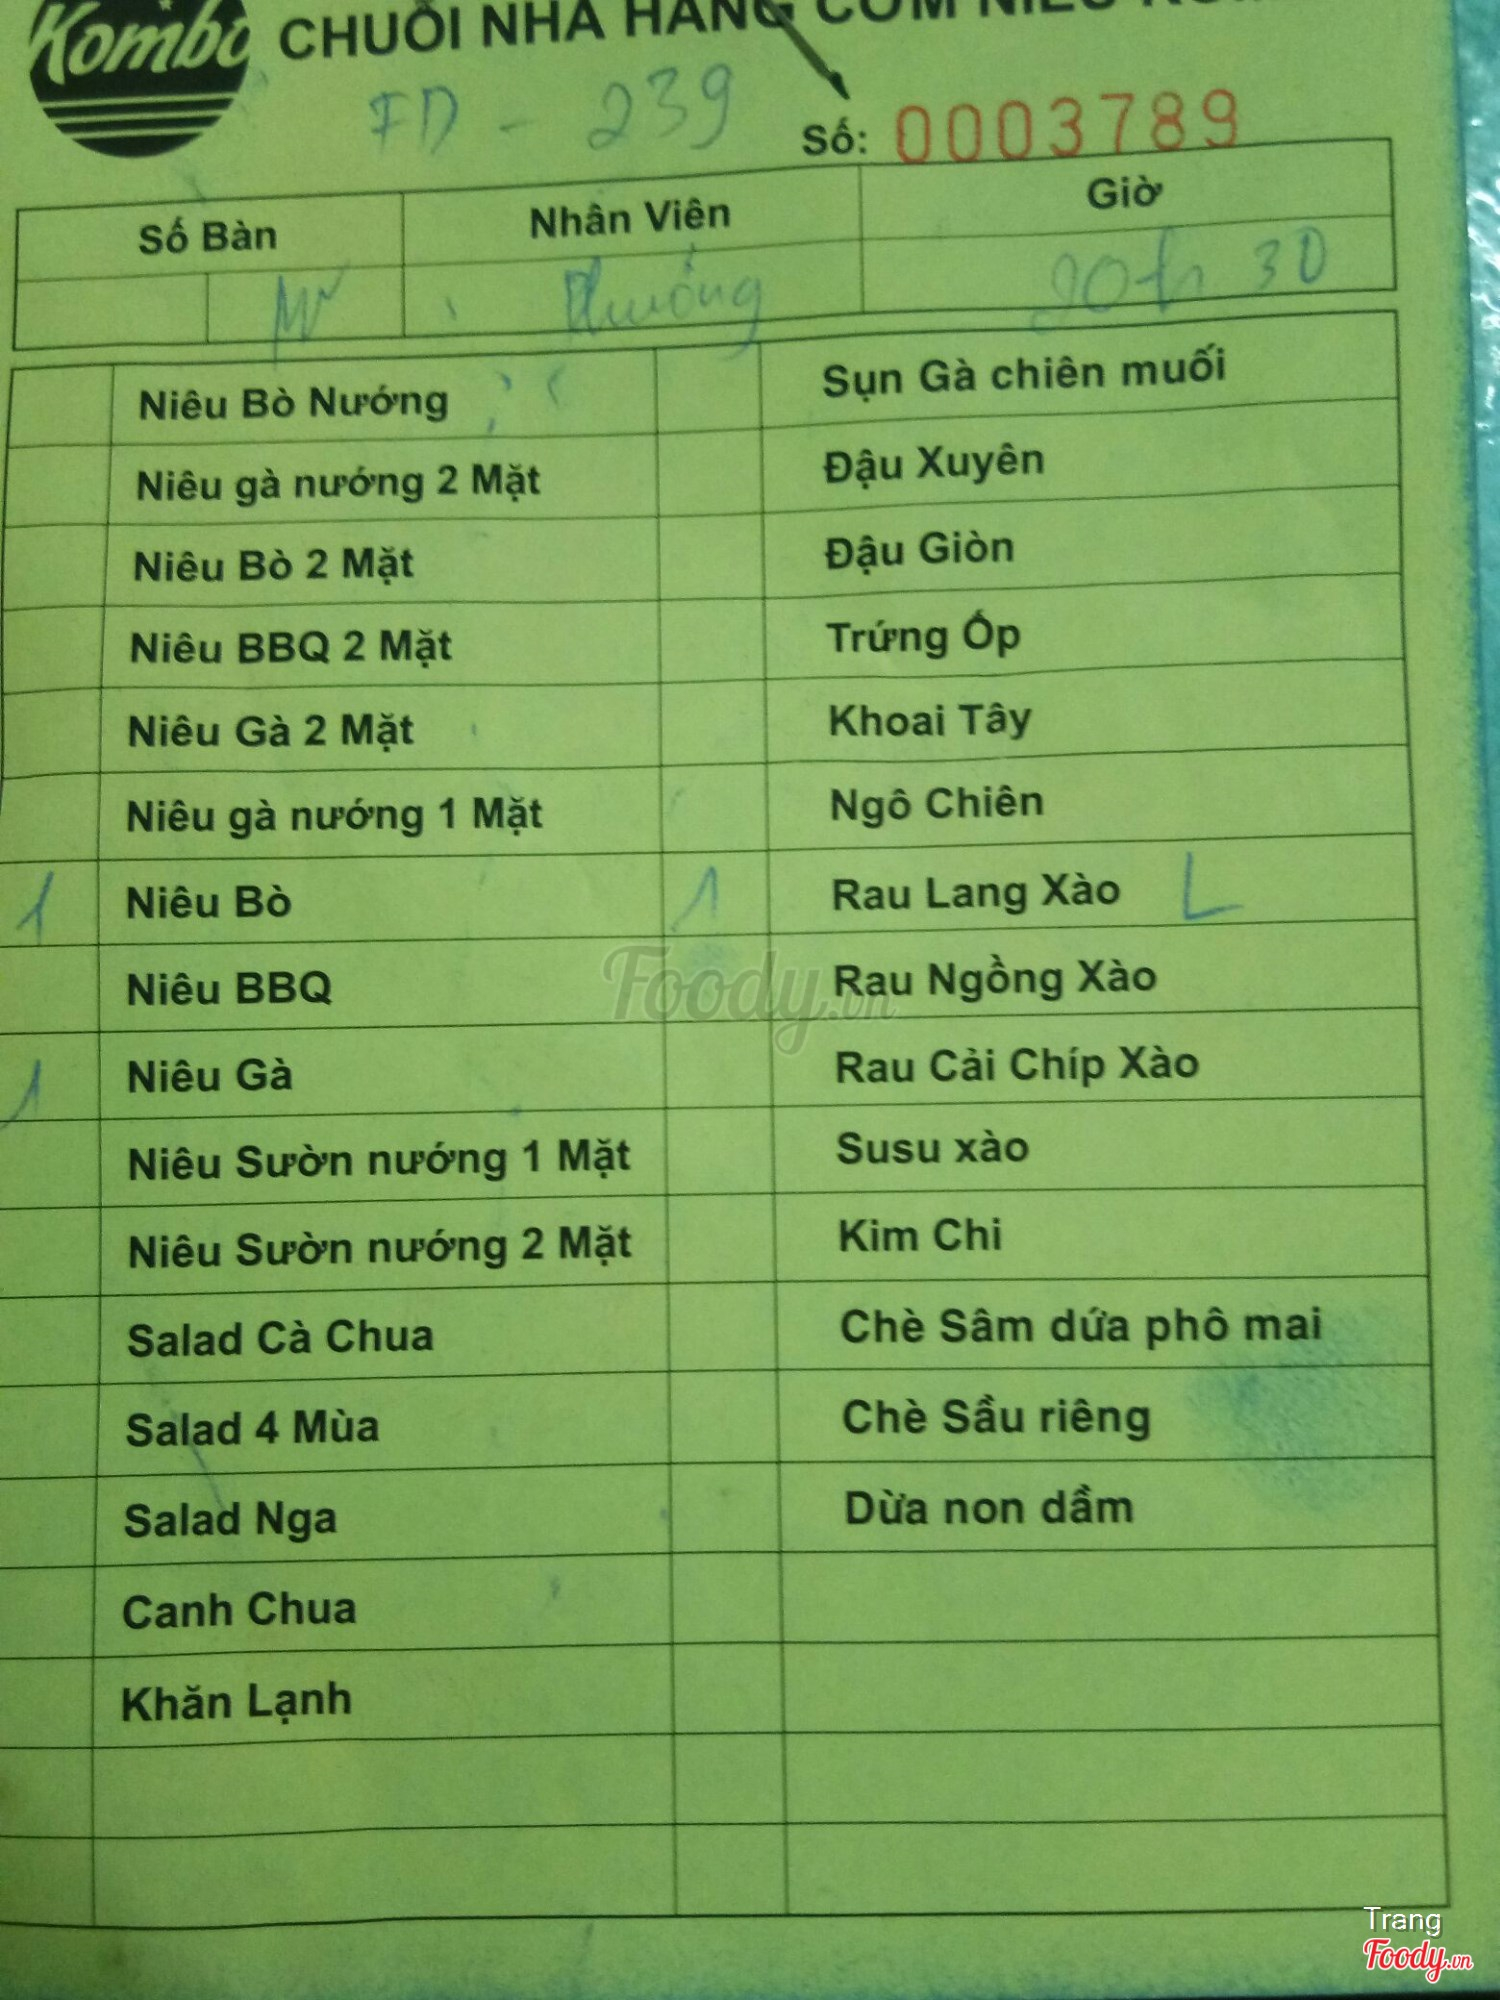 Kombo CHUỖI NHÀ HÀNG CƠM NIÊU
FD - 239
Số: 0003789
Số Bàn Nhân Viên Giờ
Phương 20h 30
Niêu Bò Nướng Sụn Gà chiên muối
Niêu gà nướng 2 Mặt Đậu Xuyên
Niêu Bò 2 Mặt Đậu Giòn
Niêu BBQ 2 Mặt Trứng Ốp
Niêu Gà 2 Mặt Khoai Tây
Niêu gà nướng 1 Mặt Ngô Chiên
1 Niêu Bò 1 Rau Lang Xào L
Niêu BBQ Rau Ngồng Xào
1 Niêu Gà Rau Cải Chíp Xào
Niêu Sườn nướng 1 Mặt Susu xào
Niêu Sườn nướng 2 Mặt Kim Chi
Salad Cà Chua Chè Sâm dứa phô mai
Salad 4 Mùa Chè Sầu riêng
Salad Nga Dừa non dầm
Canh Chua
Khăn Lạnh
Foody.vn
Trang
Foody.vn